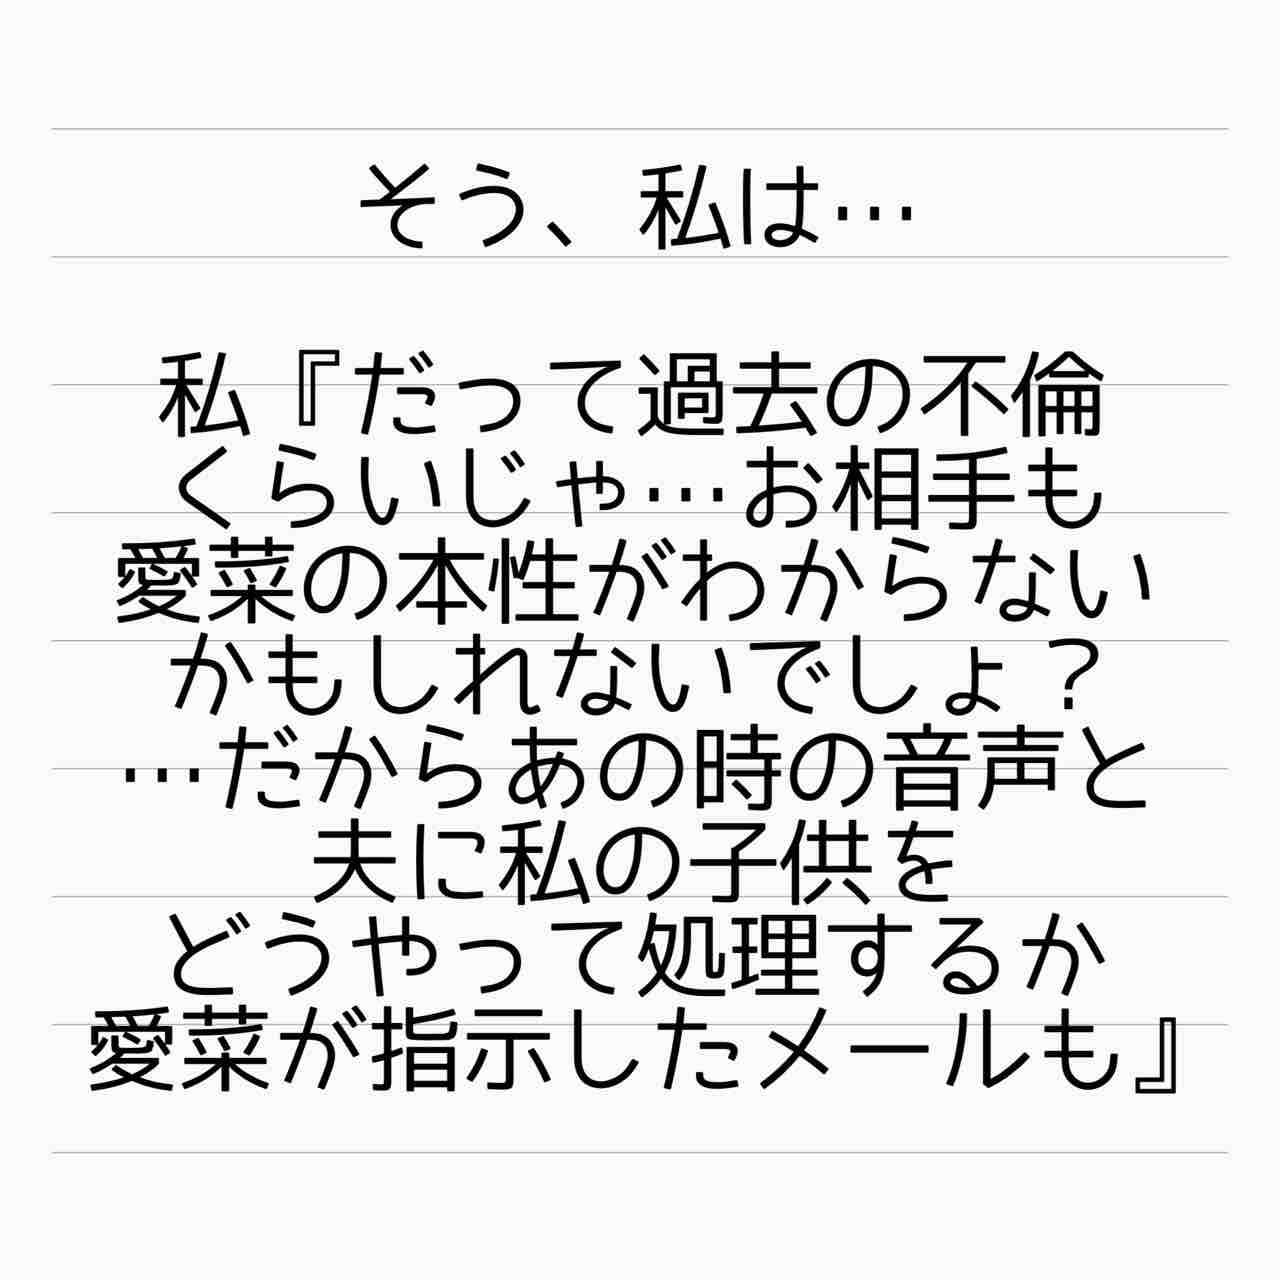 そう、私は…
私『だって過去の不倫
くらいじゃ…お相手も
愛菜の本性がわからない
かもしれないでしょ？
…だからあの時の音声と
夫に私の子供を
どうやって処理するか
愛菜が指示したメールも』